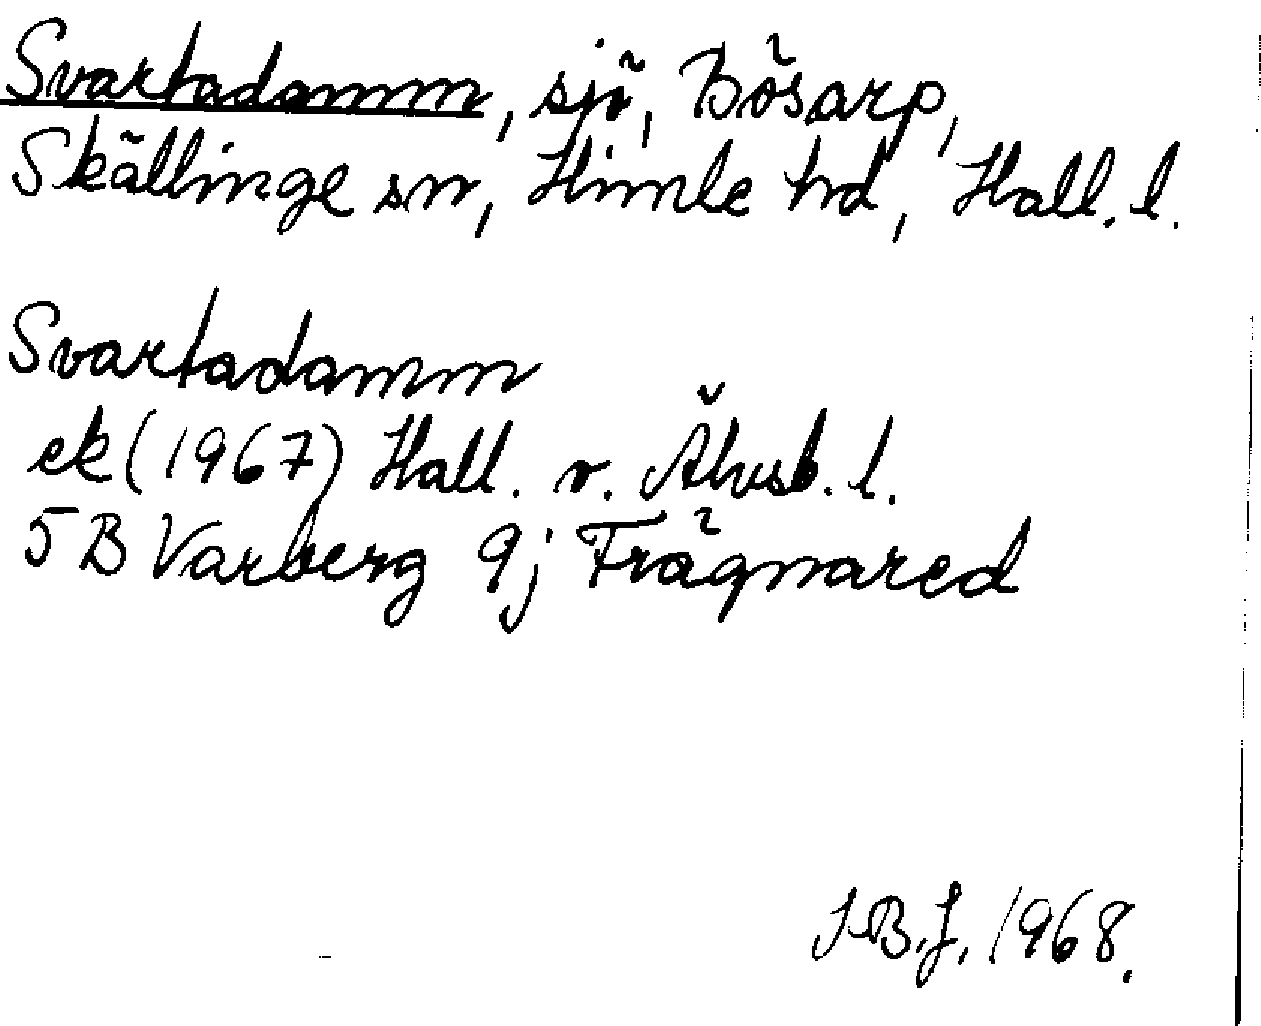 Svartadamm, sjö, Bösarp,
Skällinge sn, Himle hd, Hall. l.
Svartadamm
ek (1967) Hall. v. Älvsb. l.
5B Varberg 9j Frägnared
I.B.J. 1968.